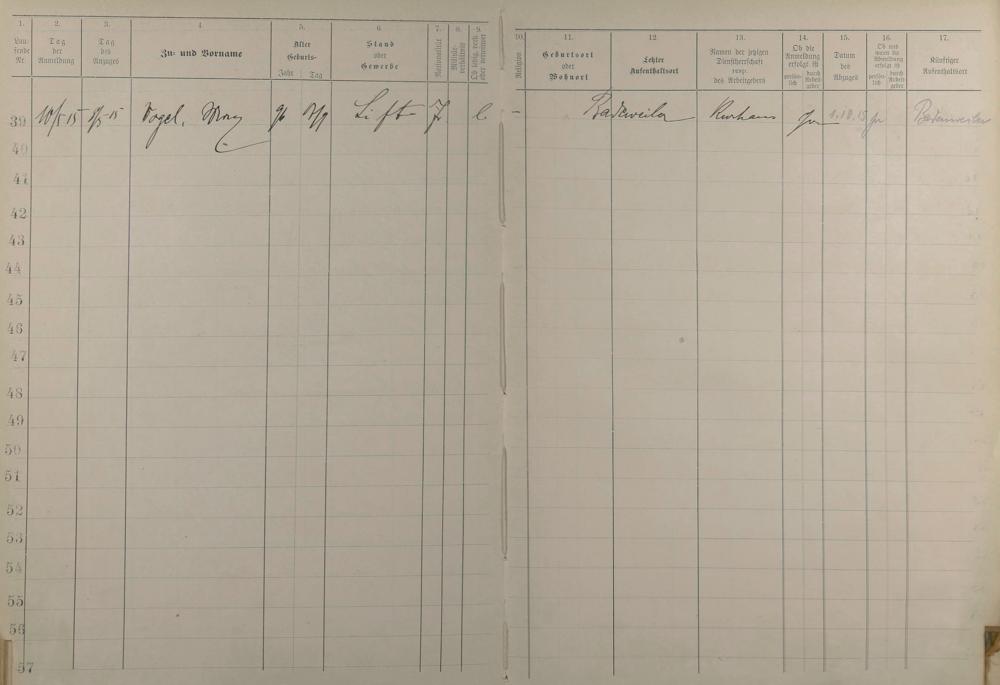 1. 2. 3. 4. 5. 6. 7. 8. 9. 10. 11. 12. 13. 14. 15. 16. 17.
Laufende Nr.
Tag der Anmeldung
Tag des Anzuges
Zu- und Vorname
Alter
Geburts-
Jahr Tag
Stand
oder
Gewerbe
Nationalität
Militärverhältnis
Religion
Geburtsort
oder
Wohnort
Letzter
Aufenthaltsort
Namen der jetzigen
Dienstherrschaft
resp.
des Arbeitgebers
Ob die
Anmeldung
erfolgt ist
persönlich
durch Arbeitgeber
Datum
des
Abzuges
Ob und
wann die
Abmeldung
erfolgt ist
persönlich
durch Arbeitgeber
Künftiger
Aufenthaltsort
39 10/5 15 Vogel, Lift l. – Badeweiler Kurhaus 1.10.15 Badenweiler
40
41
42
43
44
45
46
47
48
49
50
51
52
53
54
55
56
57